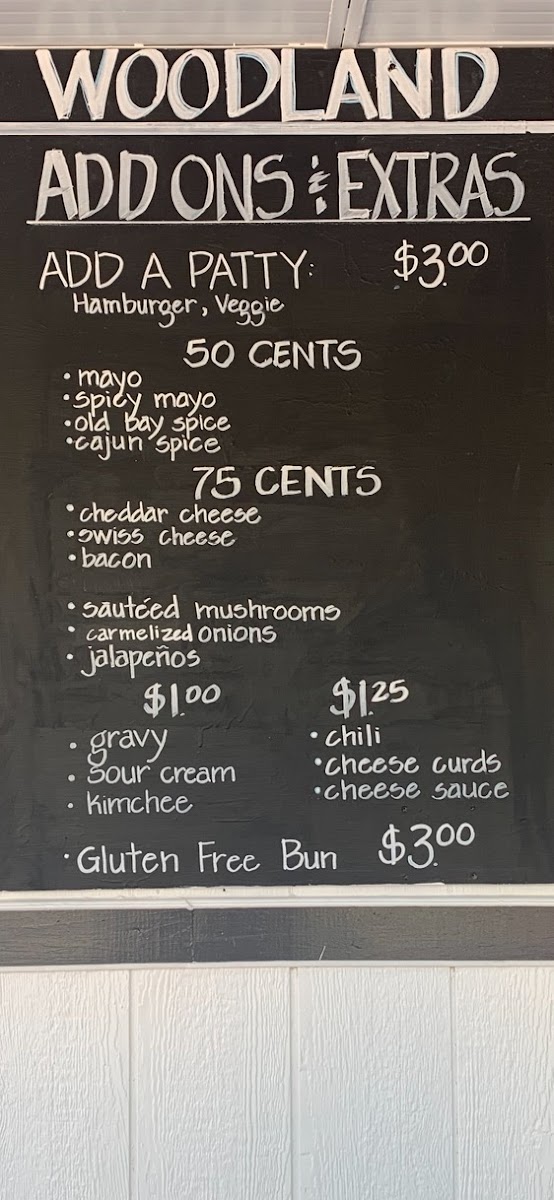 WOODLAND
ADD ONS & EXTRAS
ADD A PATTY: $3.00
Hamburger, Veggie
50 CENTS
• mayo
• spicy mayo
• old bay spice
• cajun spice
75 CENTS
• cheddar cheese
• swiss cheese
• bacon
• sautéed mushrooms
• carmelized onions
• jalapeños
$1.00
• gravy
• sour cream
• kimchee
$1.25
• chili
• cheese curds
• cheese sauce
• Gluten Free Bun $3.00